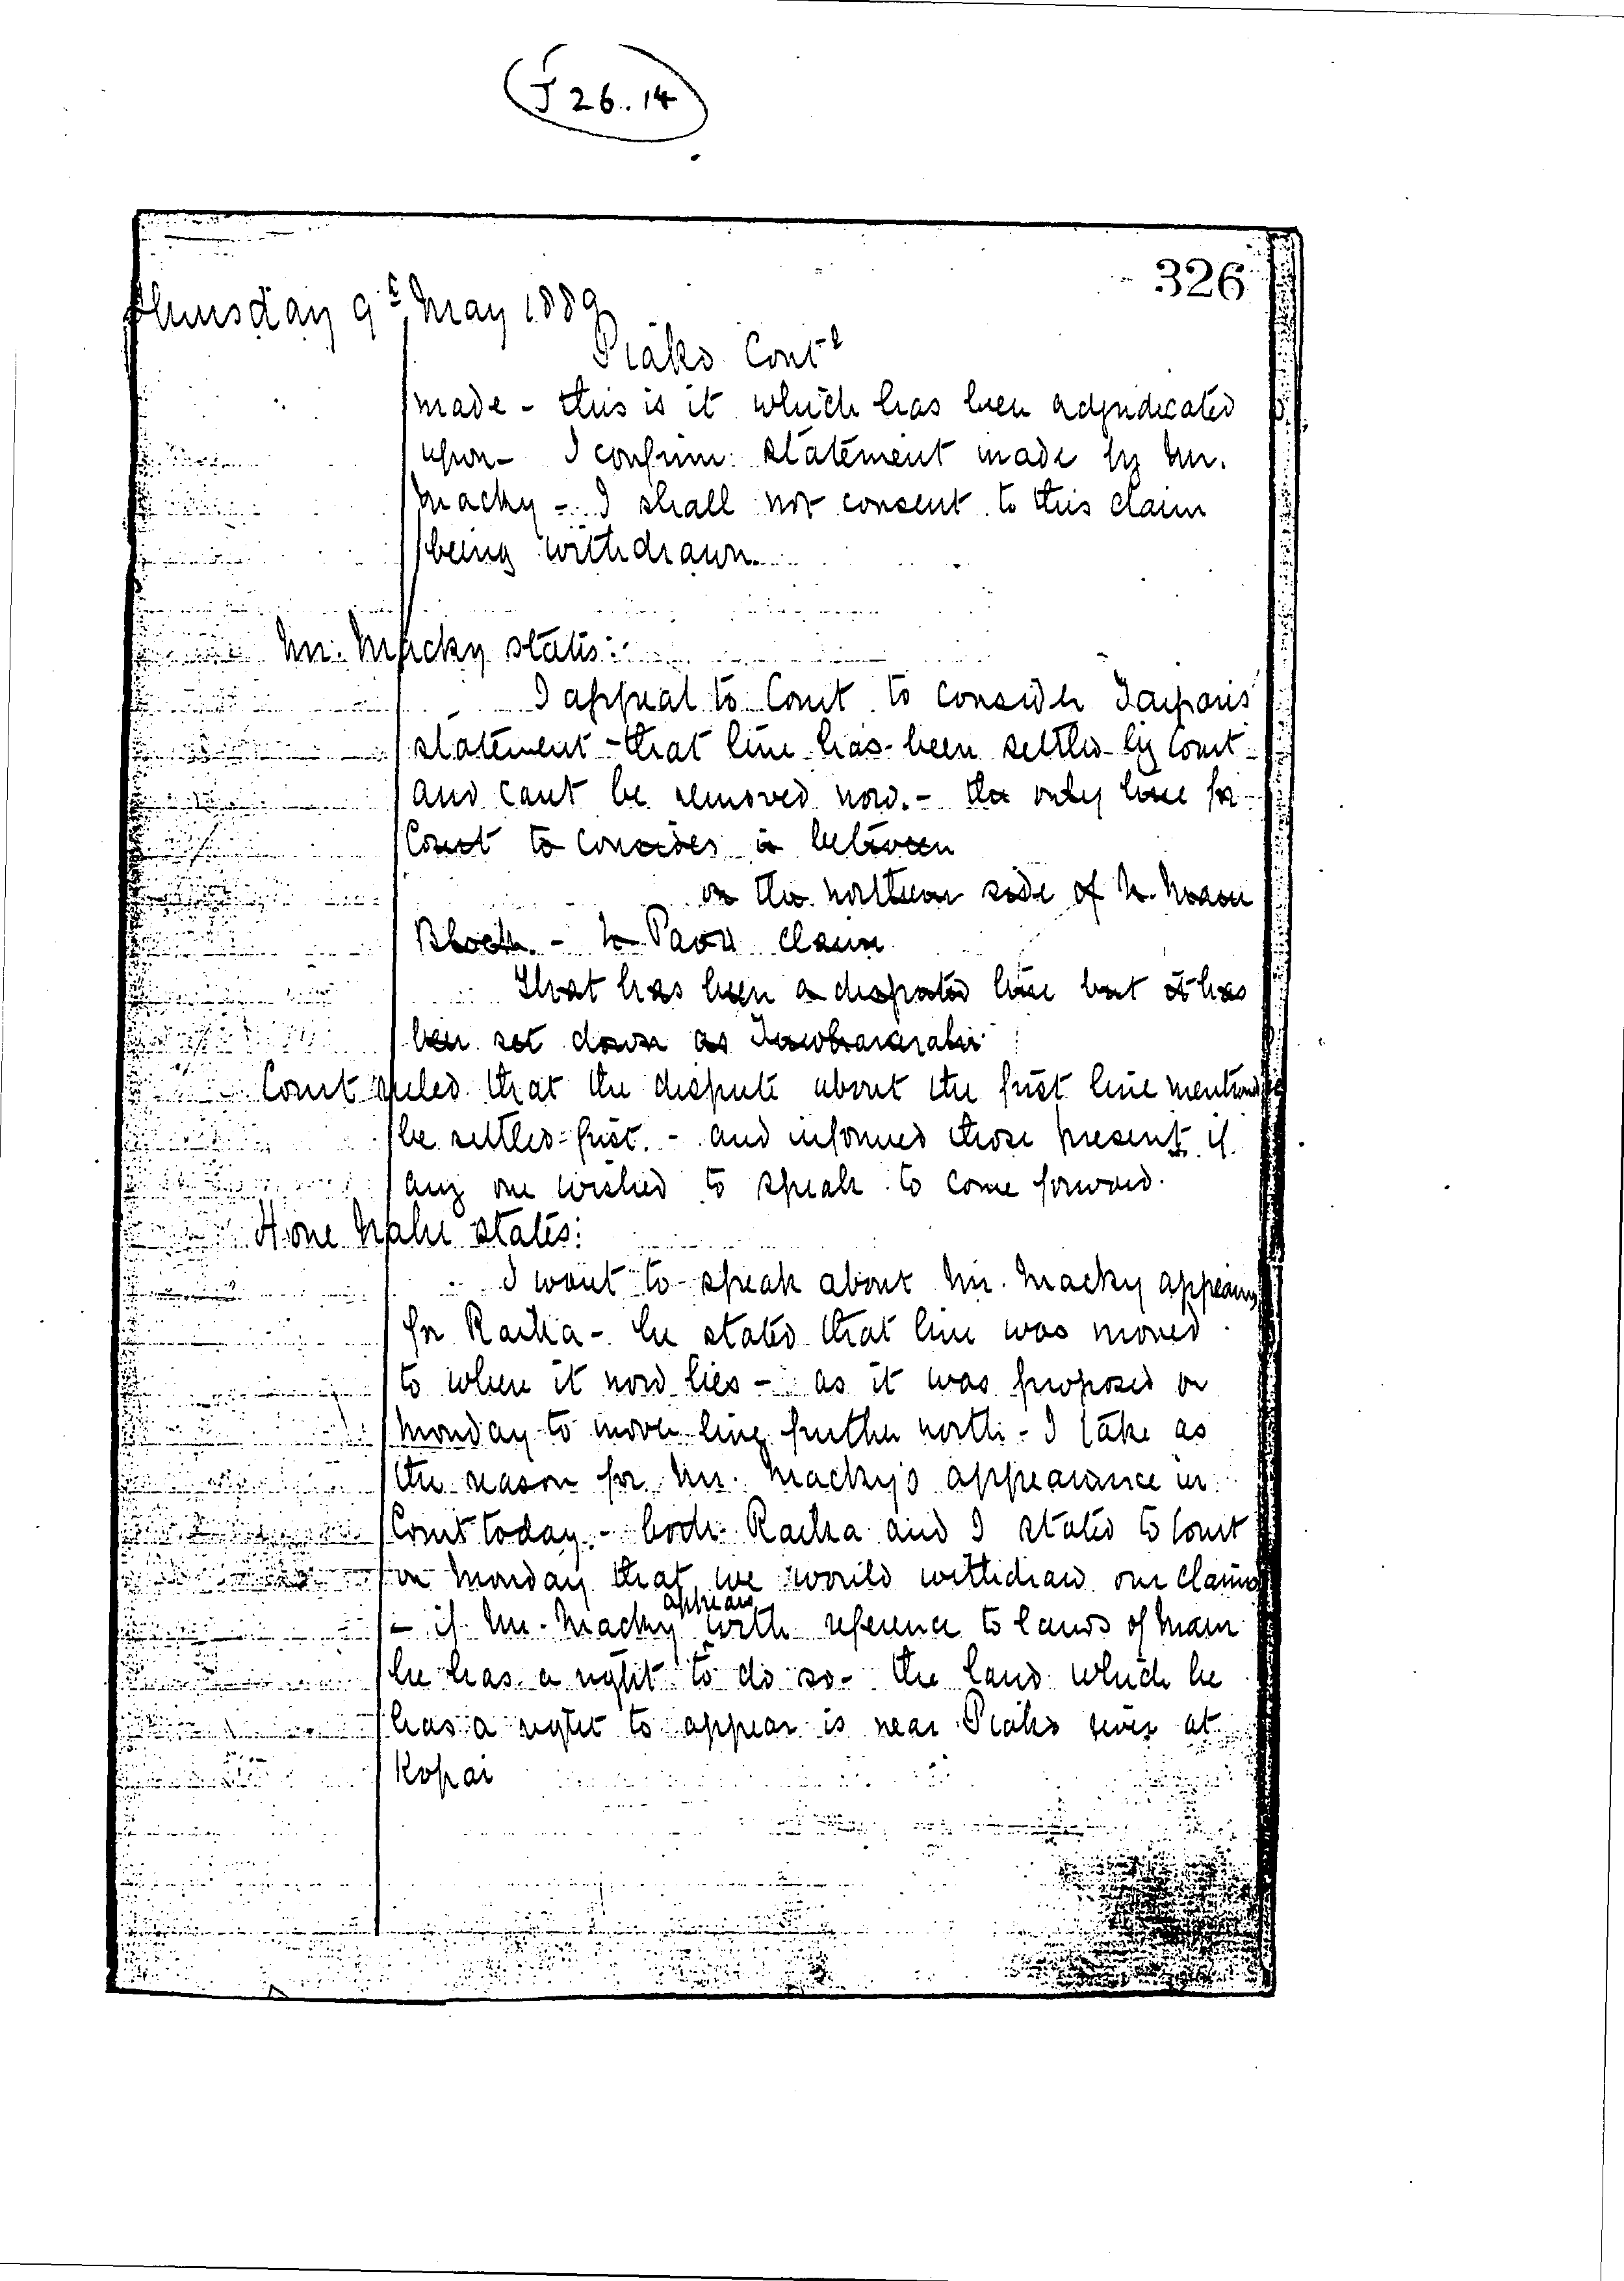 J 26.14
326
Thursday 9th May 1889
Piako Contd
made - this is it which has been adjudicated
upon - I confirm statement made by Mr.
Macky - I shall not consent to this claim
being withdrawn.
Mr. Macky states:
I appeal to Court to consider Taipari's
statement - that line has been settled by Court
and cant be removed now. - the only line for
Court to consider is between
on the northern side of
Block - to claim
That has been a disputed line but it has
been set down as
Court ruled that the dispute about the first line mentioned
be settled first. - and informed those present if
any one wished to speak to come forward.
Hone Nahe states:
I want to speak about Mr. Macky appearing
for Raika - he stated that line was moved
to where it now lies - as it was proposed on
Monday to move line further north - I take as
the reason for Mr. Macky's appearance in
Court today - both Raika and I stated to Court
on Monday that we would withdraw our claims
- if Mr. Macky appears with reference to lands of
he has a right to do so - the land which he
has a right to appear is near Piako river at
Kopai